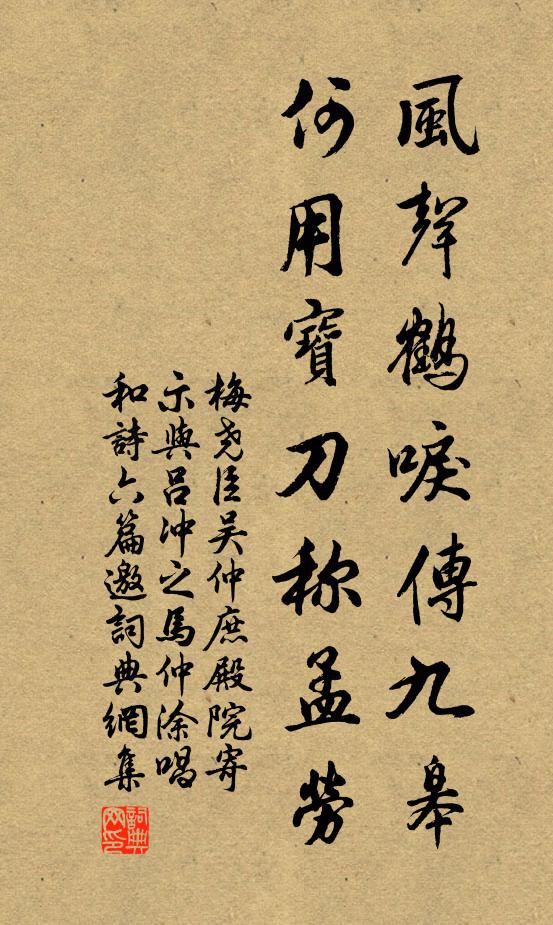 風聲鶴唳傳九皋
何用寶刀称孟勞
梅尧臣吴仲庶殿院寄
示與吕沖之馬仲涂唱
和詩六篇邀詞典網集
詞典网印